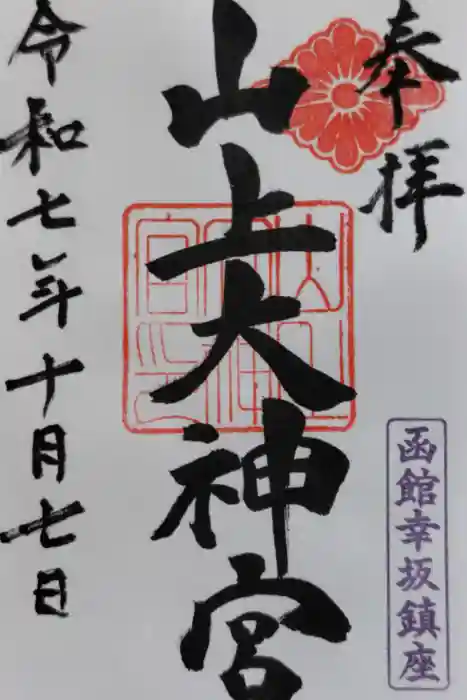 奉拝
函館幸坂鎮座
山上大神宮
令和七年十月七日